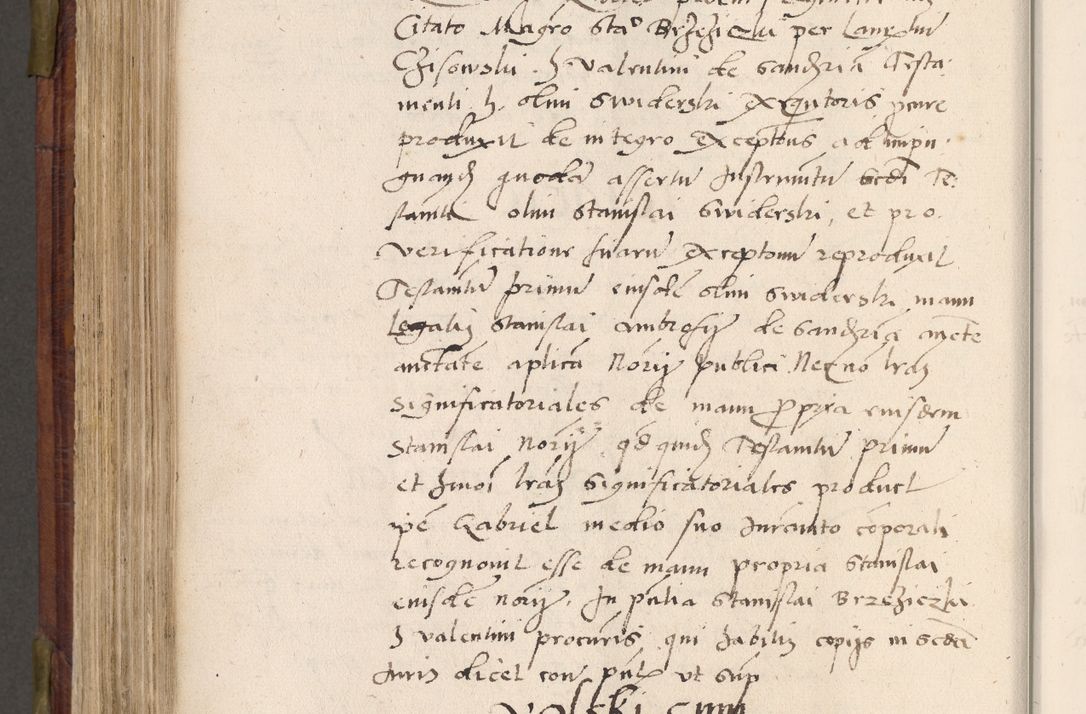 Citato Magro Sta° Brzeziczki per Canone
Czisowski. h Valentini de Sandzria Testa
menti h. olim Swiderski Executoris pcure
produxit de integro Exceptons ad impu
gnand quoda assertu Instrumtu scdi Te
stamti olim Stanislai Swiderski, et pro
verificatione suaru Exceptonu reproduxit
Testamtu primu eiusde olim Swiderski manu
legalis Stanislai Ambrosij de Sandzria
auctate aplica Norij publici Necno lras
Significatoriales de manu ppria eiusdem
Stanislai Norij qd quid Testamtu primu
et hmoi lras Significatoriales product
ipe Gabriel medio suo Iuramto corporali
recognouit esse de manu propria Stanislai
eiusde Norij. In pntia Stanislai Brzeziczki
h Valentini procuris qui habitis copijs in scda
Iuris dicet con put ut sup